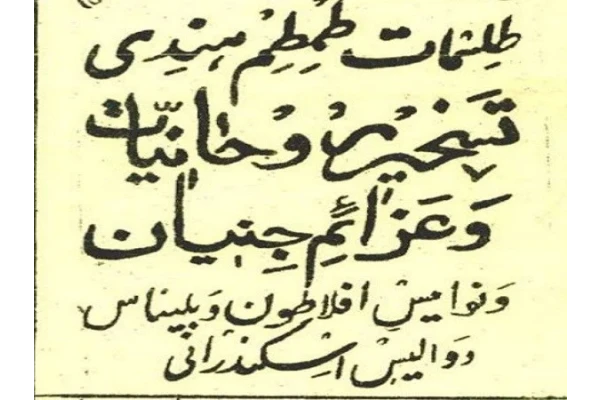 طلسمات طِمطِم هندی
تسخیر روحانیّات
وَعَزائمِ جنیان
ونوامیس افلاطون وبلیناس
دوالیس اسکندرانی